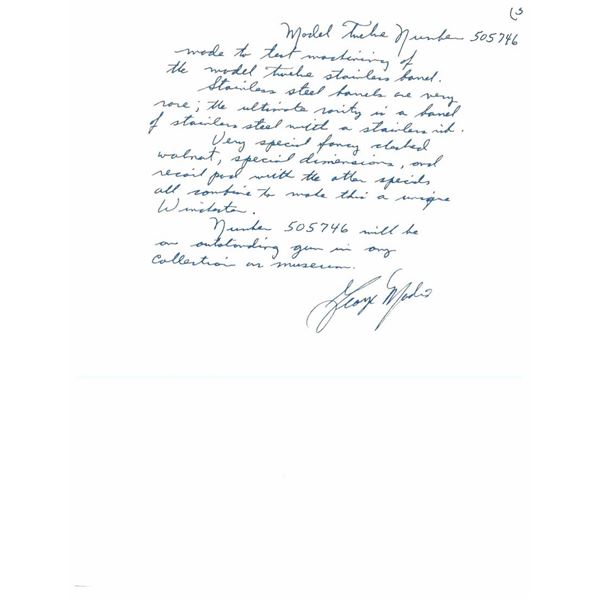 (3
Model Twelve Number 505746
made to test machining of
the model twelve stainless barrel.
Stainless steel barrels are very
rare; the ultimate rarity is a barrel
of stainless steel with a stainless rib.
Very special fancy checked
walnut, special dimensions, and
recoil pad with the other specials
all combine to make this a unique
Winchester.
Number 505746 will be
an outstanding gun in any
collection or museum.
George Madis